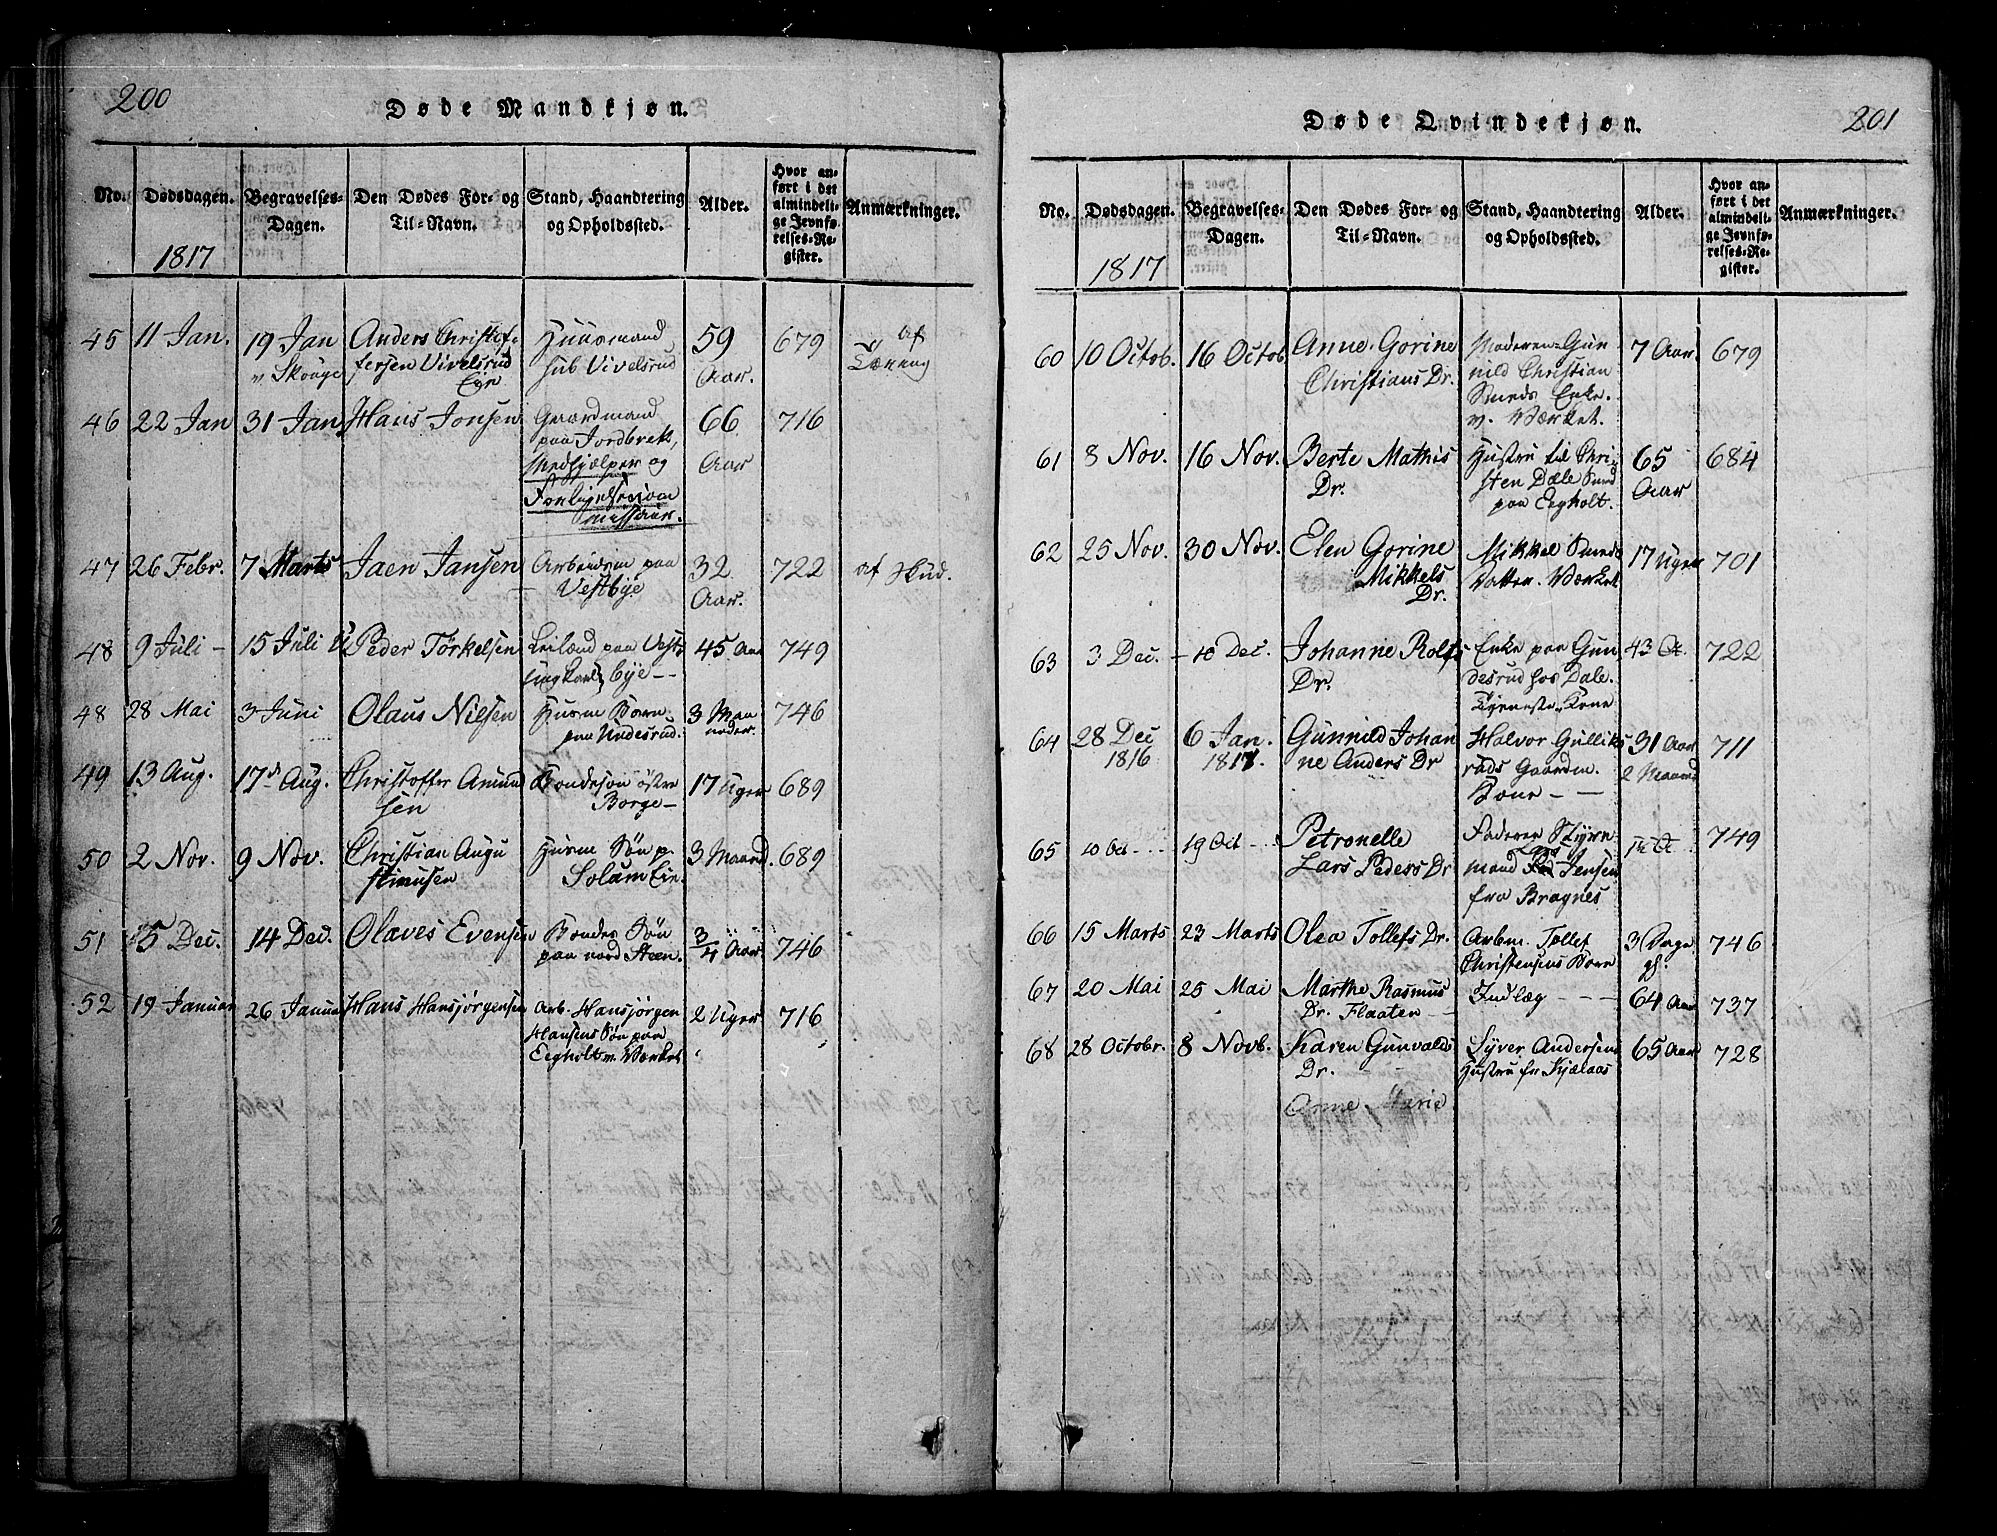 200
Døde Mandkjøn.
No.
Dødsdagen.
Begravelses-
Dagen.
Den Dødes For- og
Til-Navn.
Stand, Haandtering
og Opholdssted.
Alder.
Hvor an-
ført i det
almindeli-
ge Jevnfø-
relses-Re-
gister.
Anmærkninger.
1817
45 11 Jan. 19 Jan Anders Christof- Huusmand 59 679 af
v. Skouge fersen Vivelsrud hub Vivelsrud Aar. Tæring
Eje
46 22 Jan 31 Jan Hans Jonsen Gaardmand 66 716
paa Jordbrek, Aar
Medhjælper og
Forligelsescom
missair.
47 26 Febr. 7 Marts Jaen Jansen Arbeidsm paa 32 722 af Skud.
Vestbye Aar.
48 9 Juli - 15 Juli Peder Torkelsen Leilænd paa Vest 45 Aar 749
bye - -
48 28 Mai 3 Juni Olaus Nilsen Husm Barn 3 Maa 746
paa Undesrud. neder.
49 13 Aug. 17 Aug. Christoffer Amund Bondesøn østre 17 Uger 689
sen Borge -
50 2 Nov. 9 Nov. Christian Augu Husm Søn p. 3 Maand. 689
stinusen Solum Eie.
51 5 Dec. 14 Dec. Olaves Evensen Bondes Søn 3/4 Aar 746
paa nord Steen.
52 19 Januar 26 Januar Hans Hansjørgensen Arb. Hansjørgen 2 Uger 716
Hansens Søn paa
Eegholt v. Værket
201
Døde Qvindekjøn.
No.
Dødsdagen.
Begravelses-
Dagen.
Den Dødes For- og
Til-Navn.
Stand, Haandtering
og Opholdssted.
Alder.
Hvor an-
ført i det
almindeli-
ge Jevnfø-
relses-Re-
gister.
Anmærkninger.
1817
60 10 Octob. 16 Octob Anne Gorine Moderen Gun 7 Aar 679
Christians Dr. nild Christian
Smeds Enke.
v. Værket.
61 8 Nov. 16 Nov. Berte Mathis Hustru til Chri- 65 684
Dr. sten Dæle Smed Aar
paa Eegholt.
62 25 Nov. 30 Nov. Elen Gorine Mikkel Smeds 17 Uger 701
Mikkels Datter. Værket
Dr.
63 3 Dec. - 10 Dec. Johanne Rolfs Enke paa Gun 43 722
Dr. desrud hos Dale.
Tjeneste Kone
64 28 Dec 6 Jan. Gunnild Johan Halvor Gulliks 31 Aar 711
1816 1817. ne Anders Dr ruds Gaardm. 2 Maaned
Kone - -
65 10 Oct - - 19 Oct - - Petronelle Faderen Styrm 749
Lars Peders Dr mand Lars Jensen
fra Bragnes
66 15 Marts 23 Marts Olea Tollefs Dr. Arbm. Tollef 3 Dage 746
Christensens Barn gl.
67 20 Mai 25 Mai Marthe Rasmus Indlæg - - - 64 Aar 737
Dr. Flaaten - -
68 28 Octobr. 8 Novb. Karen Gunvalds Syver Andersens 65 Aar 728
Dr. - - Hustru fr Kjølaas
Anne Marie